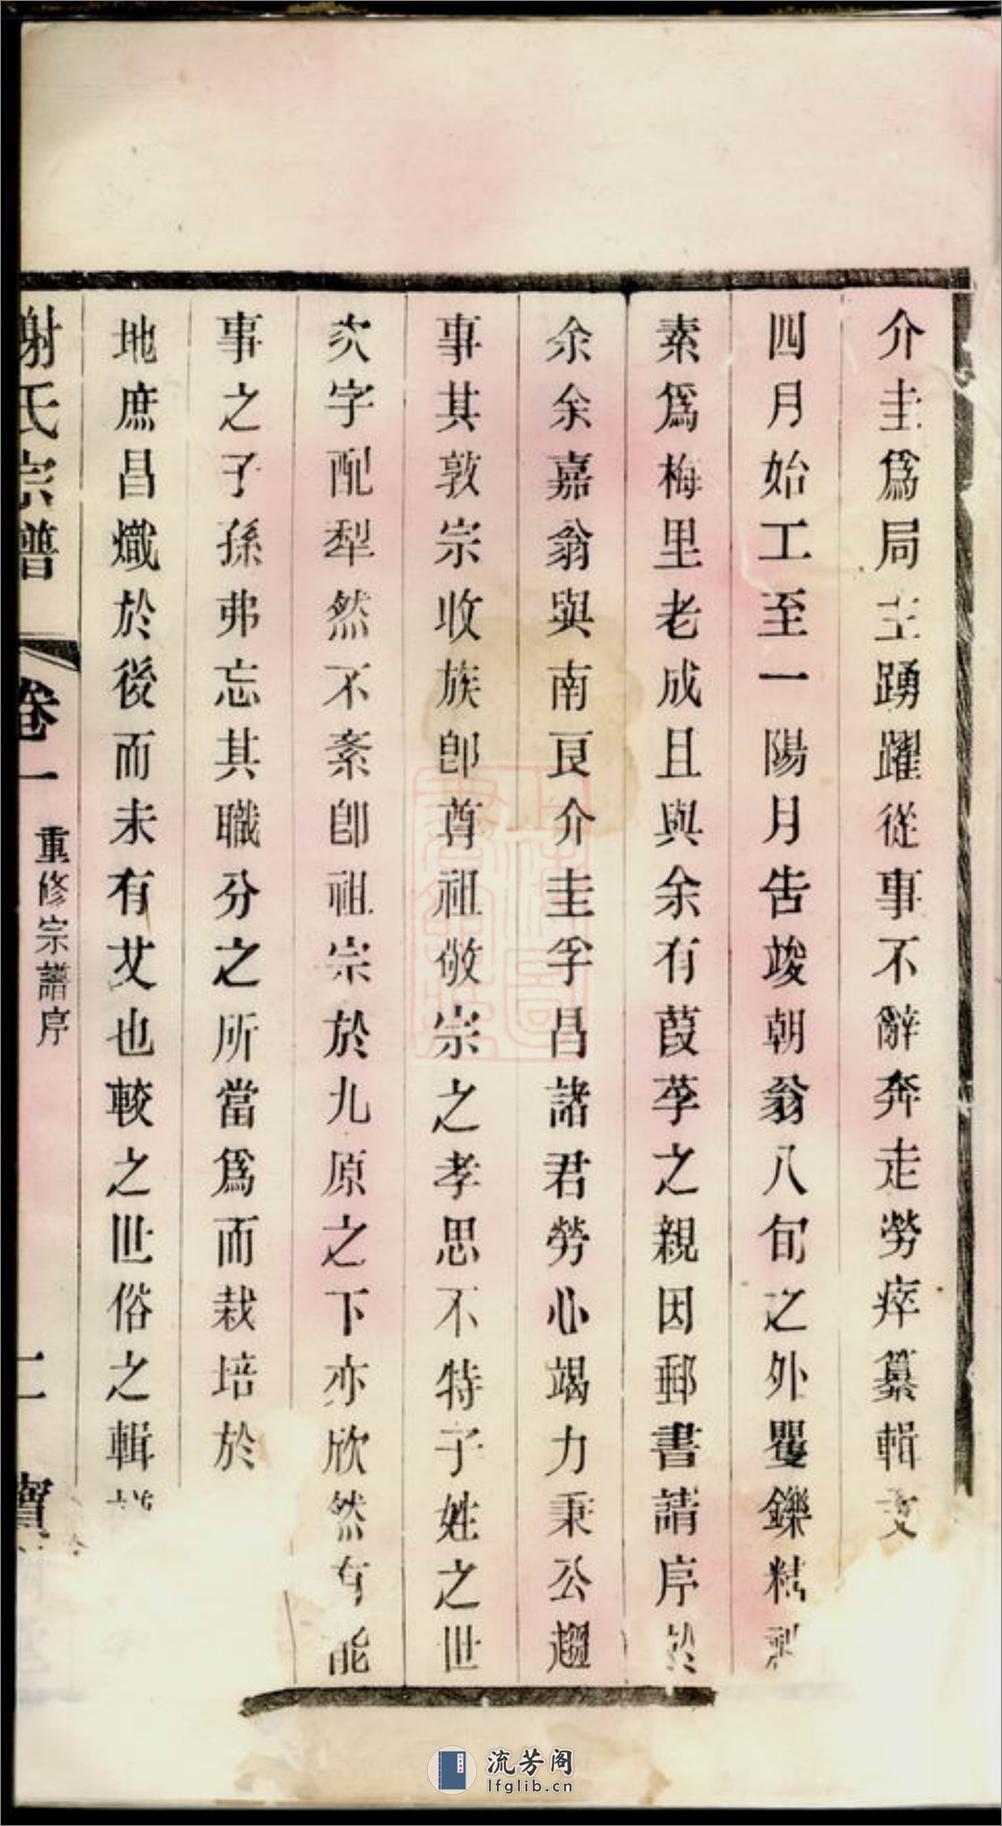 介圭爲局主踴躍從事不辭奔走勞瘁纂輯
四月始工至一陽月告竣朝翁八旬之外矍鑠精
素爲梅里老成且與余有葭莩之親因郵書請序於
余余嘉翁與南艮介圭孚昌諸君勞心竭力秉公趨
事其敦宗收族卽尊祖敬宗之孝思不特子姓之世
次字配犁然不紊卽祖宗於九原之下亦欣然有能
事之子孫弗忘其職分之所當爲而栽培於
地庶昌熾於後而未有艾也較之世俗之輯
謝氏宗譜 卷一 重修宗譜序 二 寶
流芳阁
lfglib.cn